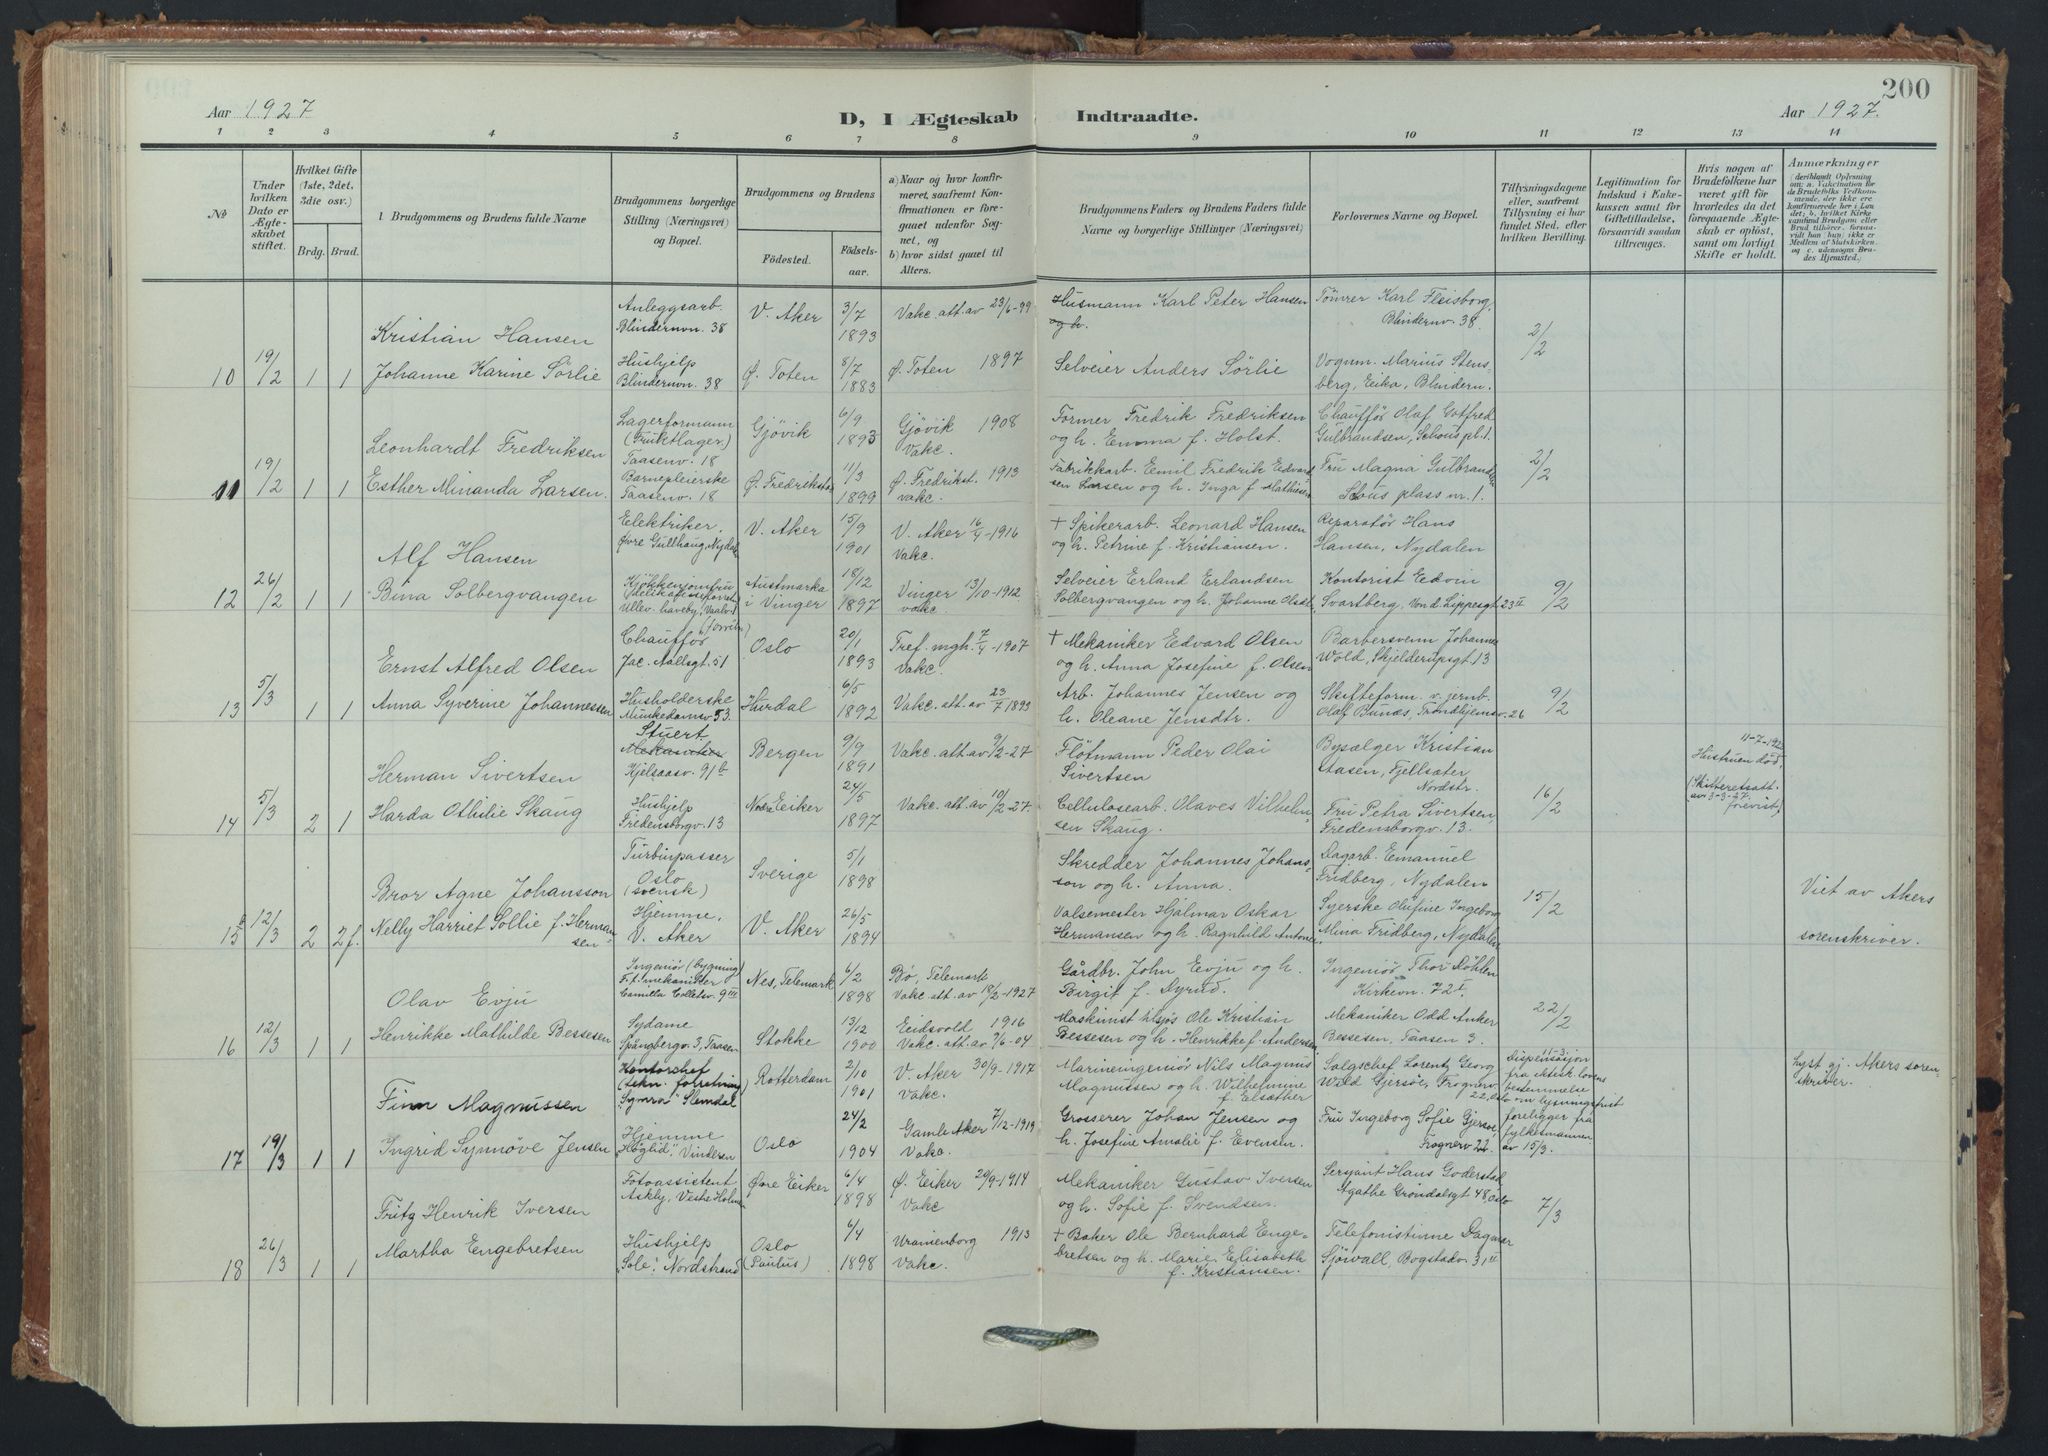 200
Aar 1927
D, I Ægteskab Indtraadte.
Aar 1927.
1 2 3 4 5 6 7 8 9 10 11 12 13 14
No.
Under hvilken Dato er Ægteskabet stiftet.
Hvilket Gifte (1ste, 2det, 3die osv.)
Brdg. Brud.
Brudgommens og Brudens fulde Navne
Brudgommens borgerlige Stilling (Næringsvei) og Bopæl.
Brudgommens og Brudens
Födested.
Födselsaar.
a) Naar og hvor konfirmeret, saafremt Konfirmationen er foregaaet udenfor Sognet, og
b) hvor sidst gaaet til Alters.
Brudgommens Faders og Brudens Faders fulde Navne og borgerlige Stillinger (Næringsvei)
Forlovernes Navne og Bopæl.
Tillysningsdagene eller, saafremt Tillysning ei har fundet Sted, efter hvilken Bevilling.
Legitimation for Indskud i Enkekassen samt for Giftetilladelse, forsaavidt saadan tiltrænges.
Hvis nogen af Brudefolkene har været gift för hvorledes da det foregaaende Ægteskab er oplöst, samt om lovligt Skifte er holdt.
Anmærkninger
(deriblandt Oplysning om: a. Vakcination for de Brudefolks Vedkommende, der ikke ere konfirmerede her i Landet; b. hvilket Kirkesamfund Brudgom eller Brud tilhörer, forsaavidt han (hun) ikke er Medlem af Statskirken, og c. udensogns Brudes Hjemsted.)
Kristian Hansen
Anleggsarb. Blindernvn. 38
V. Aker
3/7 1893
Vakc. att. av 23/6-99
Husmann Karl Peter Hansen og h.
Tömrer Karl Fleisborg, Blindernv. 38.
2/2
10 19/2 1 1 Johanne Karine Sörlie
Hushjelp Blindernvn. 38
Ø. Toten
8/7 1883
Ø. Toten 1897
Selveier Anders Sörlie
Vognm. Marius Stensberg, Eika, Blindern.
Leonhardt Fredriksen
Lagerformann (Fruktlager) Taasenv. 18
Gjövik
6/9 1893
Gjövik 1908 Vakc.
Former Fredrik Fredriksen og h. Emma f. Holst.
Chaufför Olaf Gotfred Gulbrandsen, Schous pl. 1.
2/2
11 19/2 1 1 Esther Minanda Larsen.
Barnepleierske Taasenv. 18
Ø. Fredrikstad
11/3 1899
Ø. Fredrikst. 1913 Vakc.
Fabrikkarb. Emil Fredrik Edvardsen Larsen og h. Inga f. Mathisen
Fru Magna Gulbrandsen Schous plass nr. 1.
Alf Hansen
Elektriker. Øvre Gullhaug, Nydal
V. Aker
15/9 1901
V. Aker 16/4-1916 Vakc.
+ Spikerarb. Leonard Hansen og h. Petrine f. Kristiansen.
Reparatör Hans Hansen, Nydalen
12 26/2 1 1 Bina Solbergvangen
Austmarka i Vinger
18/12 1897
Vinger 13/10-1912. vakc.
Selveier Erland Erlandsen Solbergvangen og h. Johanne
Kontorist Edvin Svartberg, Von d. Lippesgt. 23 II
9/2
Ernst Alfred Olsen
Chaufför Jac. Aallsgt. 51
Oslo
20/1 1893
Tref. mgh. 7/4-1907 Vakc.
+ Mekaniker Edvard Olsen og h. Anna Josefine f. Olsen
Barbersvenn Johannes Wold, Skjelderupsgt. 13
13 5/3 1 1 Anna Syverine Johannessen
Husholderske Munkedamsv 53.
Hurdal
6/5 1892
Vakc. att. av 23/7 1893
Arb. Johannes Jensen og h. Oleane Jensdtr.
Skifteform. v. jernb. Olaf Bunæs, Trondhjemsv. 26
9/2
Herman Sivertsen
Stuert Kjelsaasv. 91 b
Bergen
9/9 1891
Vakc. att. av 9/2-27
Flötmann Peder Olai Sivertsen
Bysælger Kristian Stasen, Fjellsæter Nordstr.
Hustruen död,
(Skifteretsatt. av 3-3-27. frevist)
14 5/3 2 1 Harda Othilie Skaug
Hushjelp Fredensborgv. 13
Nedre Eiker
24/5 1897
Vakc. att. av 10/2-27.
Cellulosearb. Olaves Vilhelmsen Skaug.
Fru Petra Sivertsen, Fredensborgv. 13.
16/2
Bror Agne Johansson
Turbinpasser Oslo (svensk)
Sverige
5/1 1898
Skredder Johannes Johansson og h. Anna.
Dagarb. Emanuel Fridberg, Nydalen
15 12/3 2 2 f. Nelly Harriet Sollie f. Hermansen
Hjemme. V. Aker
V. Aker
26/5 1894
Valsemester Hjalmar Oskar Hermansen og h. Ragnhild Antonie.
Syerske Olufine Ingeborg Mina Fridberg, Nydalen
15/2
Viet av Akers sorenskriver.
Olav Evju
Ingeniör (bygning) F. f. mekaniker Camilla Colletsv. 9 III
Nes, Telemark
6/2 1898
Bø, Telemark Vakc. att. av 18/2-1927
Gårdbr. John Evju og h. Birgit f. Nyrud.
Ingeniör Thor Döhlen Kirkevn. 72 I.
22/2
16 12/3 1 1 Henrikke Mathilde Bessesen
Sydame Spångbergv. 3, Taasen
Stokke
13/12 1900
Eidsvold 1916 Vakc. att. av 9/6-04
Maskinist tilsjös Ole Kristian Bessesen og h. Henrikke f. Andersen
Mekaniker Odd Anker Bessesen, Taasen 3.
Finn Magnussen
Kontorchef (tekn. forretning) "Symra" Slemdal
Rotterdam
2/10 1901
V. Aker 30/9-1917 Vakc.
Marineingeniör Nils Magnus Magnussen og h. Wilhelmine f. Elsæther
Salgschef Lorentz Georg Wold Gjersöe, Frognerv. 22, Oslo
Dispensasjon fra ektesk.lovens bestemmelse om lysningsfrist foreligger fra fylkesmannen av 15/3.
Lyst gj. Akers sorenskriver.
17 19/3 1 1 Ingrid Synnöve Jensen
Hjemme "Höglid", Vinderen
Oslo
24/2 1904
Gamle Aker 7/12-1919 Vakc.
Grosserer Johan Jensen og h. Josefine Amalie f. Evensen.
Fru Ingeborg Sofie Gjersöe, Frognerv 22.
Fritz Henrik Iversen
Fotoassistent Askly, Vestre Holmen
Øvre Eiker
6/4 1898
Ø. Eiker 29/9-1914 Vakc
Mekaniker Gustav Iversen og h. Sofie f. Svendsen.
Sersjant Hans Goderstad, Agathe Gröndalsgt 48, Oslo
7/3
18 26/3 1 1 Martha Engebretsen
Hushjelp "Sole". Nordstrand
Oslo (Paulus)
6/4 1898
Uranienborg 1913 Vakc.
+ Baker Ole Bernhard Engebretsen og h. Marie Elisabeth f. Kristiansen.
Telefonistinne Dagmar Sjöwall, Bogstadv. 31 II